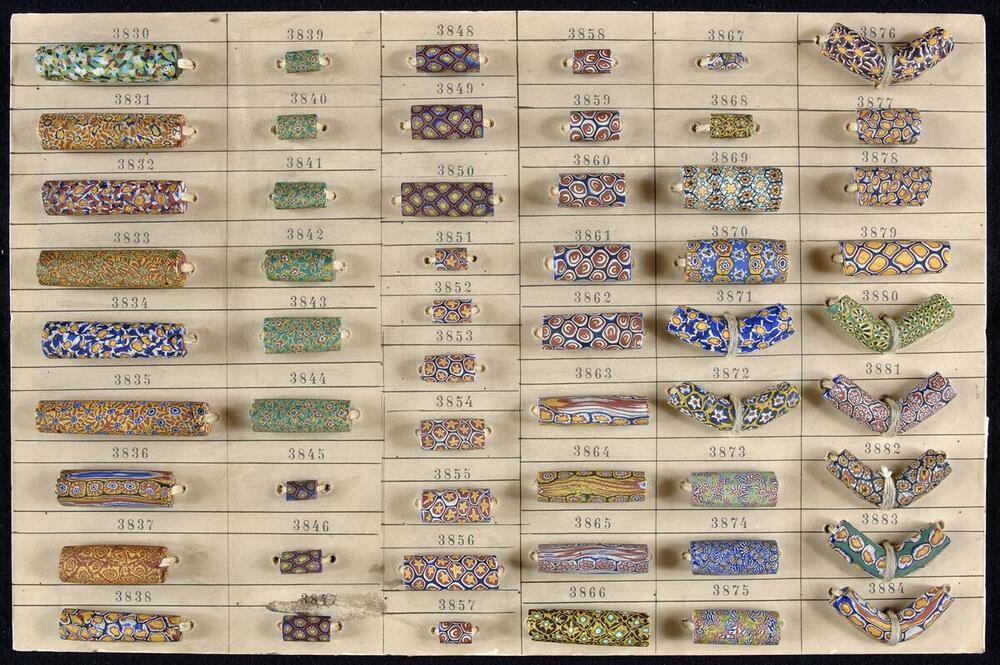 3830
3831
3832
3833
3834
3835
3836
3837
3838
3839
3840
3841
3842
3843
3844
3845
3846
3847
3848
3849
3850
3851
3852
3853
3854
3855
3856
3857
3858
3859
3860
3861
3862
3863
3864
3865
3866
3867
3868
3869
3870
3871
3872
3873
3874
3875
3876
3877
3878
3879
3880
3881
3882
3883
3884